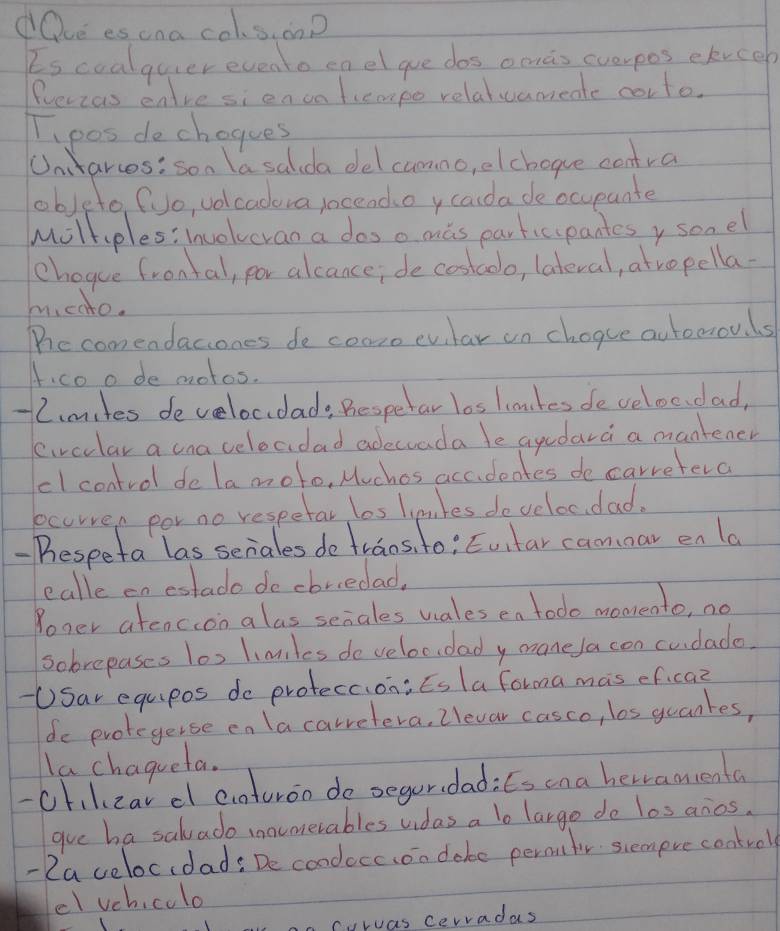 ¿Qué es una colisión?
Es cualquier evento en el que dos o más cuerpos ejercen
fuerzas entre si en un tiempo relativamente corto.
Tipos de choques
Unitarios: son la salida del camino, el choque contra
objeto fijo, volcadura, incendio y caida de ocupante
Múltiples: Involucran a dos o más participantes y son el
Choque frontal, por alcance, de costado, lateral, atropella-
miento.
Recomendaciones de como evitar un choque automovilis
tico o de motos.
- Limites de velocidad: Respetar los limites de velocidad,
circular a una velocidad adecuada le ayudará a mantener
el control de la moto. Muchos accidentes de carretera
ocurren por no respetar los limites de velocidad.
- Respeta las señales de tránsito: Evitar caminar en la
calle en estado de ebriedad.
Poner atención a las señales viales en todo momento, no
sobrepases los limites de velocidad y maneja con cuidado.
- Usar equipos de protección: Es la forma más eficaz
de protegerse en la carretera. Llevar casco, los guantes,
la chaqueta.
- Utilizar el cinturón de seguridad: Es una herramienta
que ha salvado innumerables vidas a lo largo de los años.
- La velocidad: De conducción debe permitir siempre control
el vehiculo
curvas cerradas